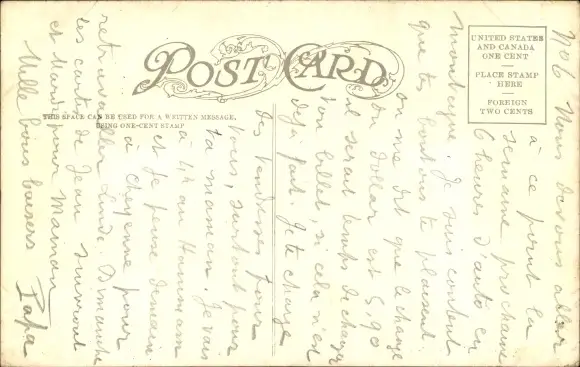 POST CARD
THIS SPACE CAN BE USED FOR A WRITTEN MESSAGE,
USING ONE-CENT STAMP
UNITED STATES
AND CANADA
ONE CENT
PLACE STAMP
HERE
FOREIGN
TWO CENTS
No 6 Nous devons aller
à ce point la
semaine prochaine
6 heures d'auto en
montagne. Je suis content
que tes boutons te plaisent.
On me dit que le change
du dollar est 5,90
ce serait temps de changer
ton billet, si cela n'est
déjà fait. Je te charge
des tendresses pour
tous, surtout pour
ta maman. Je vais
à 4h au Hammam
et je pense demain
à Cheyenne pour
retrouver lundi. Dimanche
les cartes de Jean suivront
et Mardi pour Maman
Mille bons baisers
Papa